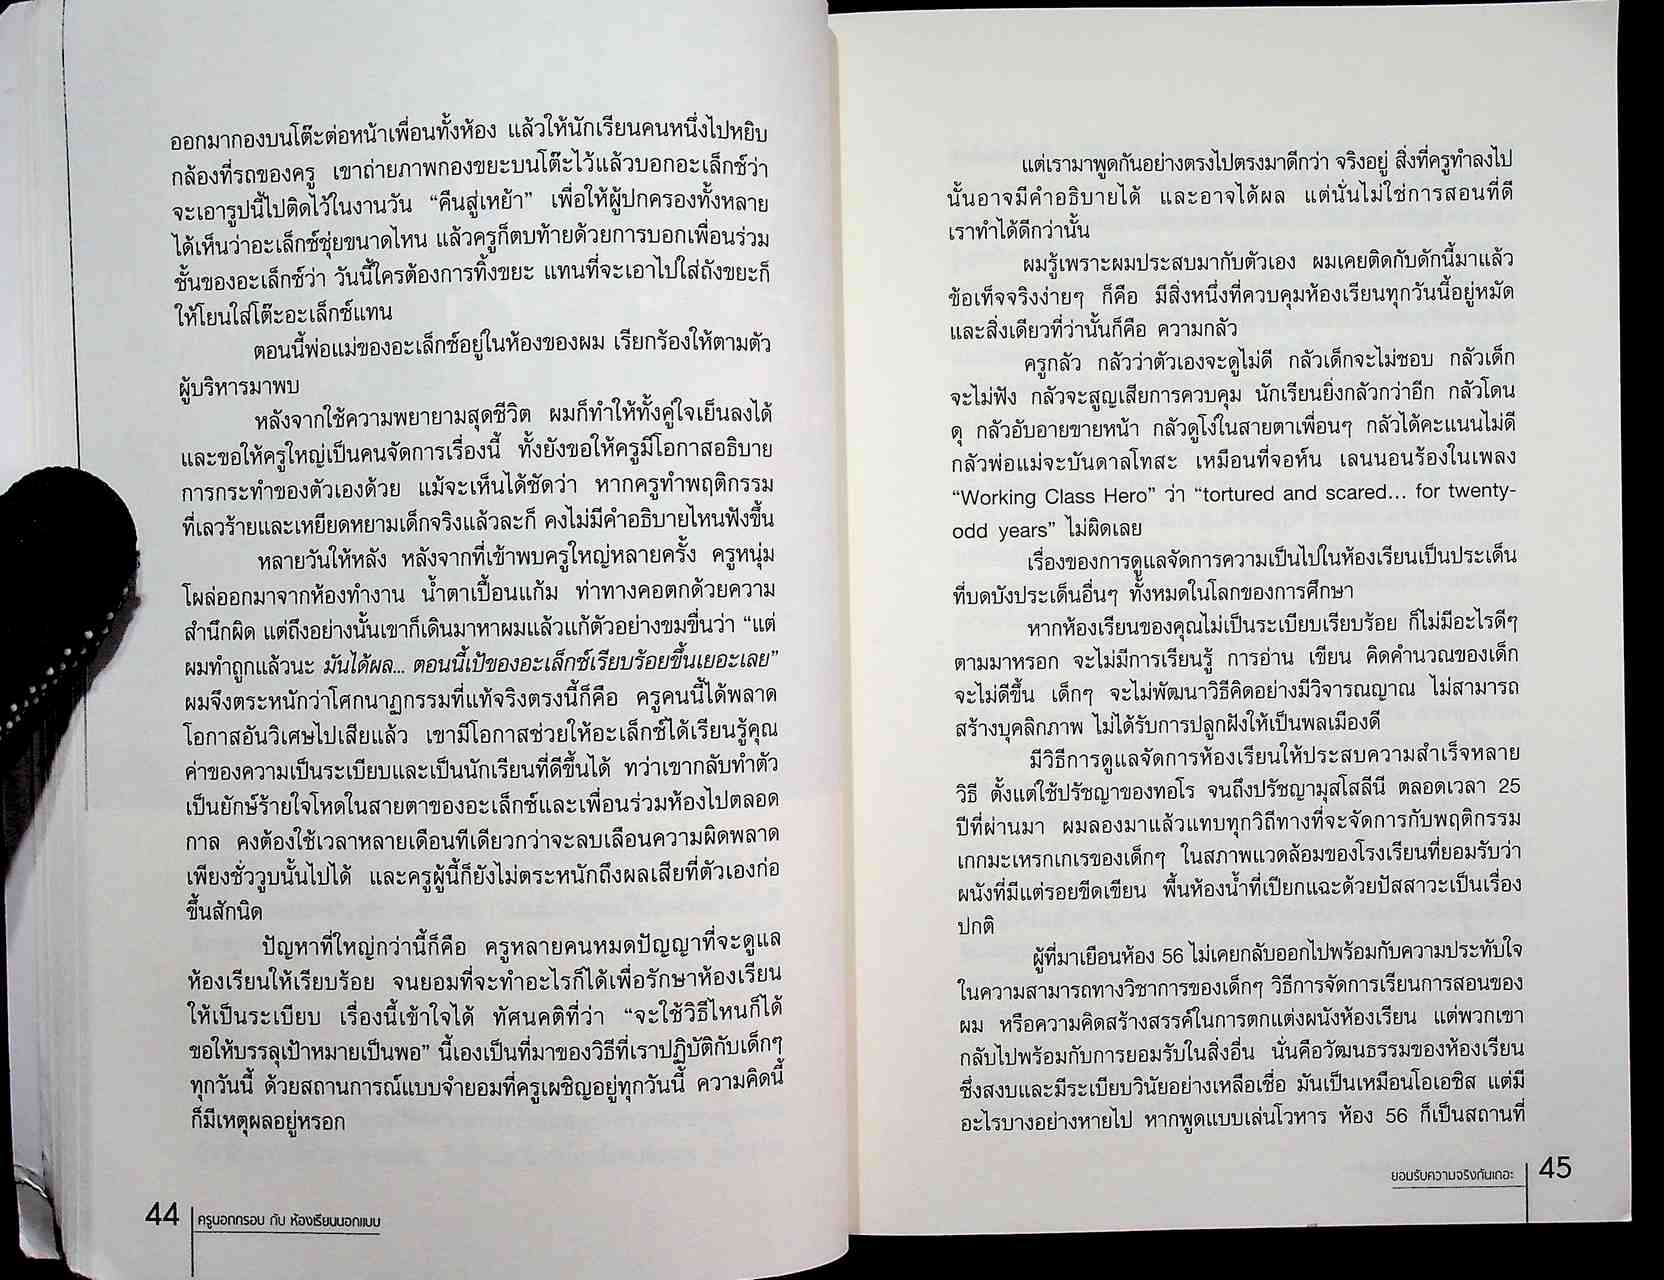 ออกมากองบนโต๊ะต่อหน้าเพื่อนทั้งห้อง แล้วให้นักเรียนคนหนึ่งไปหยิบ
กล้องที่รถของครู เขาถ่ายภาพกองขยะบนโต๊ะไว้แล้วบอกอะเล็กซ์ว่า
จะเอารูปนี้ไปติดไว้ในงานวัน “คืนสู่เหย้า” เพื่อให้ผู้ปกครองทั้งหลาย
ได้เห็นว่าอะเล็กซ์ซุ่ยขนาดไหน แล้วครูก็ตบท้ายด้วยการบอกเพื่อนร่วม
ชั้นของอะเล็กซ์ว่า วันนี้ใครต้องการทิ้งขยะ แทนที่จะเอาไปใส่ถังขยะก็
ให้โยนใส่โต๊ะอะเล็กซ์แทน
ตอนนี้พ่อแม่ของอะเล็กซ์อยู่ในห้องของผม เรียกร้องให้ตามตัว
ผู้บริหารมาพบ
หลังจากใช้ความพยายามสุดชีวิต ผมก็ทำให้ทั้งคู่ใจเย็นลงได้
และขอให้ครูใหญ่เป็นคนจัดการเรื่องนี้ ทั้งยังขอให้ครูมีโอกาสอธิบาย
การกระทำของตัวเองด้วย แม้จะเห็นได้ชัดว่า หากครูทำพฤติกรรม
ที่เลวร้ายและเหยียดหยามเด็กจริงแล้วละก็ คงไม่มีคำอธิบายไหนฟังขึ้น
หลายวันให้หลัง หลังจากที่เข้าพบครูใหญ่หลายครั้ง ครูหนุ่ม
โผล่ออกมาจากห้องทำงาน น้ำตาเปื้อนแก้ม ท่าทางคอตกด้วยความ
สำนึกผิด แต่ถึงอย่างนั้นเขาก็เดินมาหาผมแล้วแก้ตัวอย่างขมขื่นว่า “แต่
ผมทำถูกแล้วนะ มันได้ผล... ตอนนี้เป้ของอะเล็กซ์เรียบร้อยขึ้นเยอะเลย”
ผมจึงตระหนักว่าโศกนาฏกรรมที่แท้จริงตรงนี้ก็คือ ครูคนนี้ได้พลาด
โอกาสอันวิเศษไปเสียแล้ว เขามีโอกาสช่วยให้อะเล็กซ์ได้เรียนรู้คุณ
ค่าของความเป็นระเบียบและเป็นนักเรียนที่ดีขึ้นได้ ทว่าเขากลับทำตัว
เป็นยักษ์ร้ายใจโหดในสายตาของอะเล็กซ์และเพื่อนร่วมห้องไปตลอด
กาล คงต้องใช้เวลาหลายเดือนทีเดียวกว่าจะลบเลือนความผิดพลาด
เพียงชั่ววูบนั้นไปได้ และครูผู้นี้ก็ยังไม่ตระหนักถึงผลเสียที่ตัวเองก่อ
ขึ้นสักนิด
ปัญหาที่ใหญ่กว่านี้ก็คือ ครูหลายคนหมดปัญญาที่จะดูแล
ห้องเรียนให้เรียบร้อย จนยอมที่จะทำอะไรก็ได้เพื่อรักษาห้องเรียน
ให้เป็นระเบียบ เรื่องนี้เข้าใจได้ ทัศนคติที่ว่า “จะใช้วิธีไหนก็ได้
ขอให้บรรลุเป้าหมายเป็นพอ” นี้เองเป็นที่มาของวิธีที่เราปฏิบัติกับเด็กๆ
ทุกวันนี้ ด้วยสถานการณ์แบบจำยอมที่ครูเผชิญอยู่ทุกวันนี้ ความคิดนี้
ก็มีเหตุผลอยู่หรอก
44 ครูนอกกรอบ กับ ห้องเรียนนอกแบบ
แต่เรามาพูดกันอย่างตรงไปตรงมาดีกว่า จริงอยู่ สิ่งที่ครูทำลงไป
นั้นอาจมีคำอธิบายได้ และอาจได้ผล แต่นั่นไม่ใช่การสอนที่ดี
เราทำได้ดีกว่านั้น
ผมรู้เพราะผมประสบมากับตัวเอง ผมเคยติดกับดักนี้มาแล้ว
ข้อเท็จจริงง่ายๆ ก็คือ มีสิ่งหนึ่งที่ควบคุมห้องเรียนทุกวันนี้อยู่หมัด
และสิ่งเดียวที่ว่านั้นก็คือ ความกลัว
ครูกลัว กลัวว่าตัวเองจะดูไม่ดี กลัวเด็กจะไม่ชอบ กลัวเด็ก
จะไม่ฟัง กลัวจะสูญเสียการควบคุม นักเรียนยิ่งกลัวกว่าอีก กลัวโดน
ดุ กลัวอับอายขายหน้า กลัวดูโง่ในสายตาเพื่อนๆ กลัวได้คะแนนไม่ดี
กลัวพ่อแม่จะบันดาลโทสะ เหมือนที่จอห์น เลนนอนร้องในเพลง
“Working Class Hero” ว่า “tortured and scared... for twenty-
odd years” ไม่ผิดเลย
เรื่องของการดูแลจัดการความเป็นไปในห้องเรียนเป็นประเด็น
ที่บดบังประเด็นอื่นๆ ทั้งหมดในโลกของการศึกษา
หากห้องเรียนของคุณไม่เป็นระเบียบเรียบร้อย ก็ไม่มีอะไรดีๆ
ตามมาหรอก จะไม่มีการเรียนรู้ การอ่าน เขียน คิดคำนวณของเด็ก
จะไม่ดีขึ้น เด็กๆ จะไม่พัฒนาวิธีคิดอย่างมีวิจารณญาณ ไม่สามารถ
สร้างบุคลิกภาพ ไม่ได้รับการปลูกฝังให้เป็นพลเมืองดี
มีวิธีการดูแลจัดการห้องเรียนให้ประสบความสำเร็จหลาย
วิธี ตั้งแต่ใช้ปรัชญาของทอโร จนถึงปรัชญามุสโสลีนี ตลอดเวลา 25
ปีที่ผ่านมา ผมลองมาแล้วแทบทุกวิถีทางที่จะจัดการกับพฤติกรรม
เกกมะเหรกเกเรของเด็กๆ ในสภาพแวดล้อมของโรงเรียนที่ยอมรับว่า
ผนังที่มีแต่รอยขีดเขียน พื้นห้องน้ำที่เปียกแฉะด้วยปัสสาวะเป็นเรื่อง
ปกติ
ผู้ที่มาเยือนห้อง 56 ไม่เคยกลับออกไปพร้อมกับความประทับใจ
ในความสามารถทางวิชาการของเด็กๆ วิธีการจัดการเรียนการสอนของ
ผม หรือความคิดสร้างสรรค์ในการตกแต่งผนังห้องเรียน แต่พวกเขา
กลับไปพร้อมกับการยอมรับในสิ่งอื่น นั่นคือวัฒนธรรมของห้องเรียน
ซึ่งสงบและมีระเบียบวินัยอย่างเหลือเชื่อ มันเป็นเหมือนโอเอซิส แต่มี
อะไรบางอย่างหายไป หากพูดแบบเล่นโวหาร ห้อง 56 ก็เป็นสถานที่
ยอมรับความจริงกันเถอะ 45